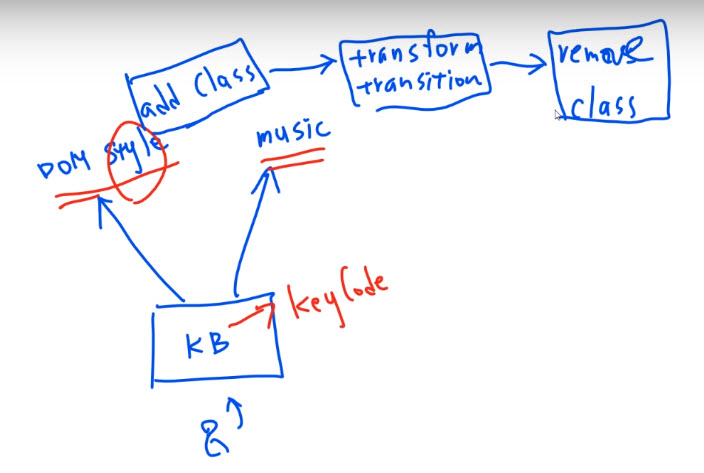 add Class
transform
transition
remove
class
DOM Style
music
keyCode
KB